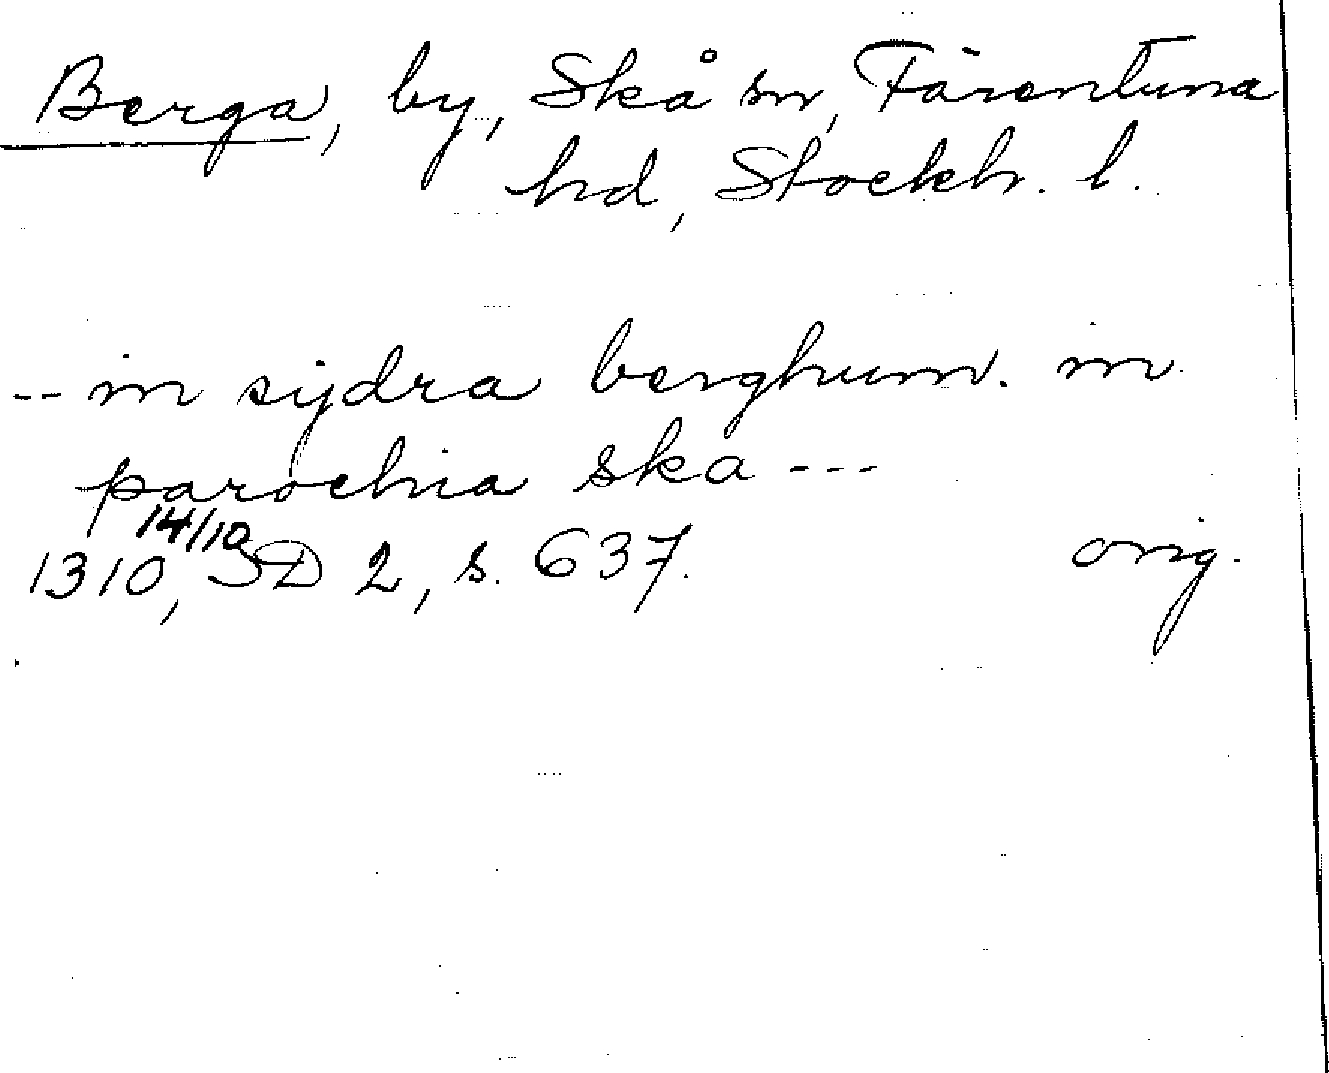 Berga, by, Skå sn, Färentuna
hd, Stockh. l.
-- in sydra berghum. in
parochia ska ---
14/10
1310, SD 2, s. 637. orig.